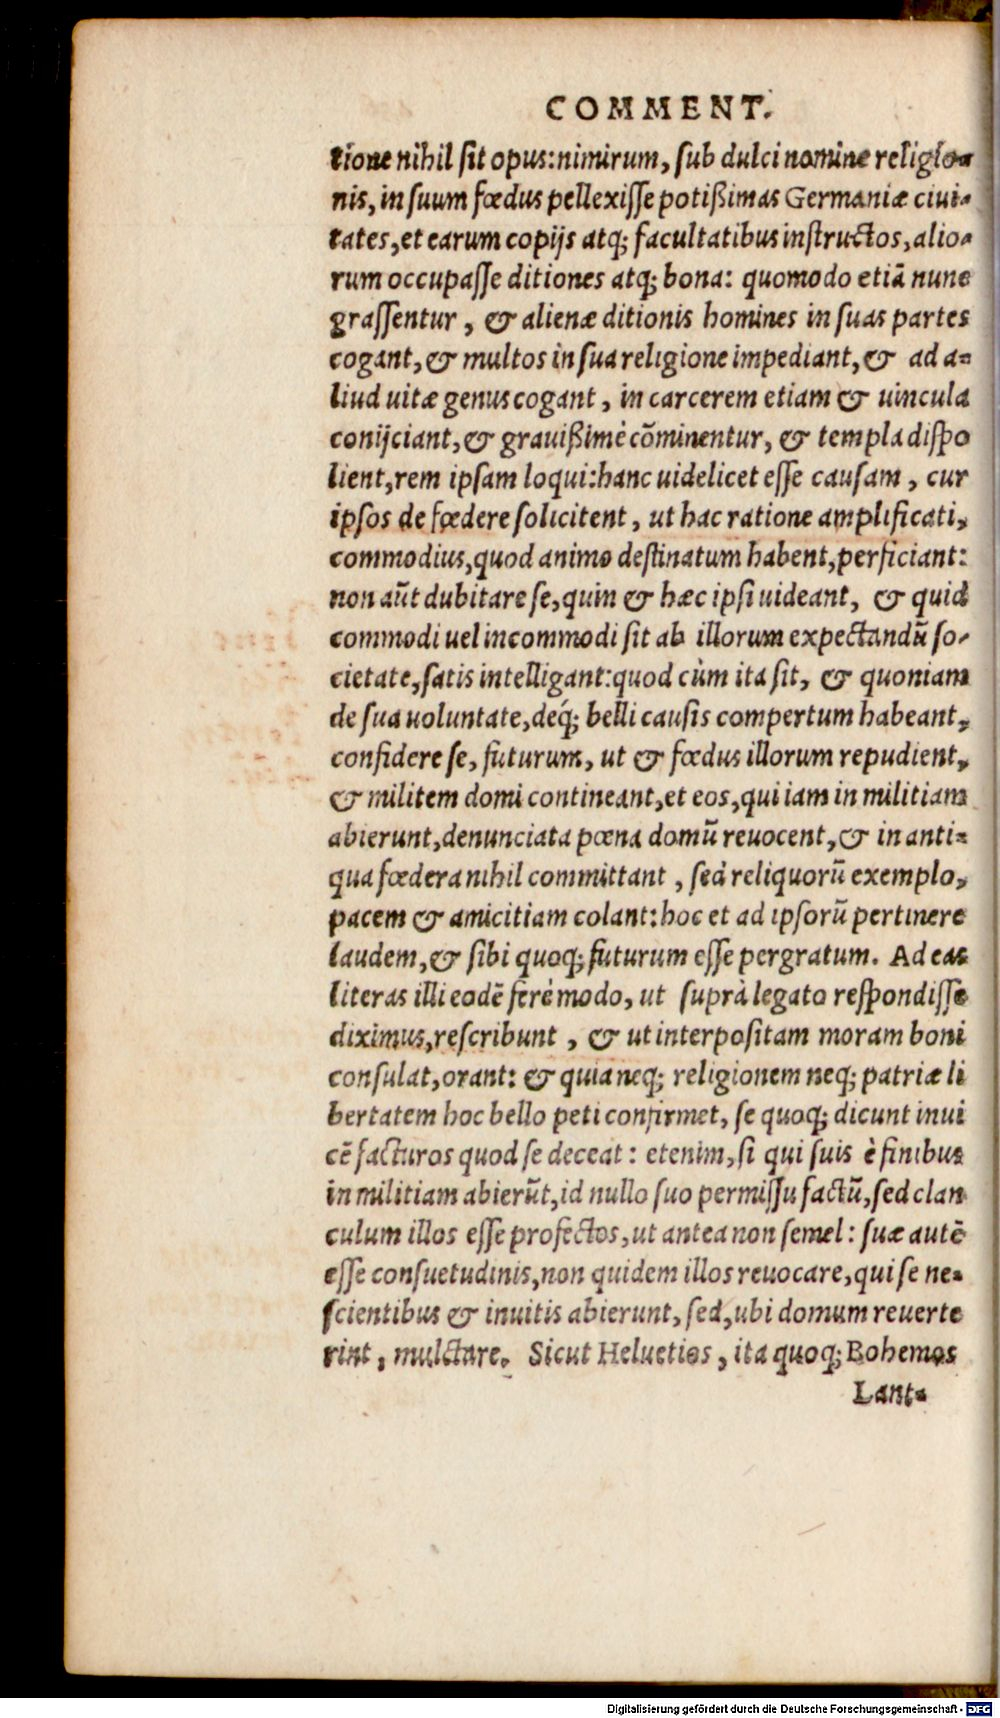 COMMENT.
tione nihil sit opus: nimirum, sub dulci nomine religio-
nis, in suum fœdus pellexisse potißimas Germaniæ ciui-
tates, et earum copijs atq; facultatibus instructos, alio-
rum occupasse ditiones atq; bona: quomodo etiā nunc
grassentur, & alienæ ditionis homines in suas partes
cogant, & multos in sua religione impediant, & ad a-
liud uitæ genus cogant, in carcerem etiam & uincula
conijciant, & grauißimè cōminentur, & templa dispo
lient, rem ipsam loqui: hanc uidelicet esse causam, cur
ipsos de fœdere solicitent, ut hac ratione amplificati,
commodius, quod animo destinatum habent, perficiant:
non aūt dubitare se, quin & hæc ipsi uideant, & quid
commodi uel incommodi sit ab illorum expectandū so-
cietate, satis intelligant: quod cùm ita sit, & quoniam
de sua uoluntate, deq́; belli causis compertum habeant,
confidere se, futurum, ut & fœdus illorum repudient,
& militem domi contineant, et eos, qui iam in militiam
abierunt, denunciata pœna domū reuocent, & in anti-
qua fœdera nihil committant, sed reliquorū exemplo,
pacem & amicitiam colant: hoc et ad ipsorū pertinere
laudem, & sibi quoq; futurum esse pergratum. Ad eas
literas illi eodē ferè modo, ut suprà legato respondisse
diximus, rescribunt, & ut interpositam moram boni
consulat, orant: & quia neq; religionem neq; patriæ li
bertatem hoc bello peti confirmet, se quoq; dicunt inui
cē facturos quod se deceat: etenim, si qui suis è finibus
in militiam abierūt, id nullo suo permissu factū, sed clan
culum illos esse profectos, ut antea non semel: suæ autē
esse consuetudinis, non quidem illos reuocare, qui se ne-
scientibus & inuitis abierunt, sed, ubi domum reuerte
rint, mulctare. Sicut Heluetios, ita quoq; Bohemos
Lant-
Digitalisierung gefördert durch die Deutsche Forschungsgemeinschaft - DFG